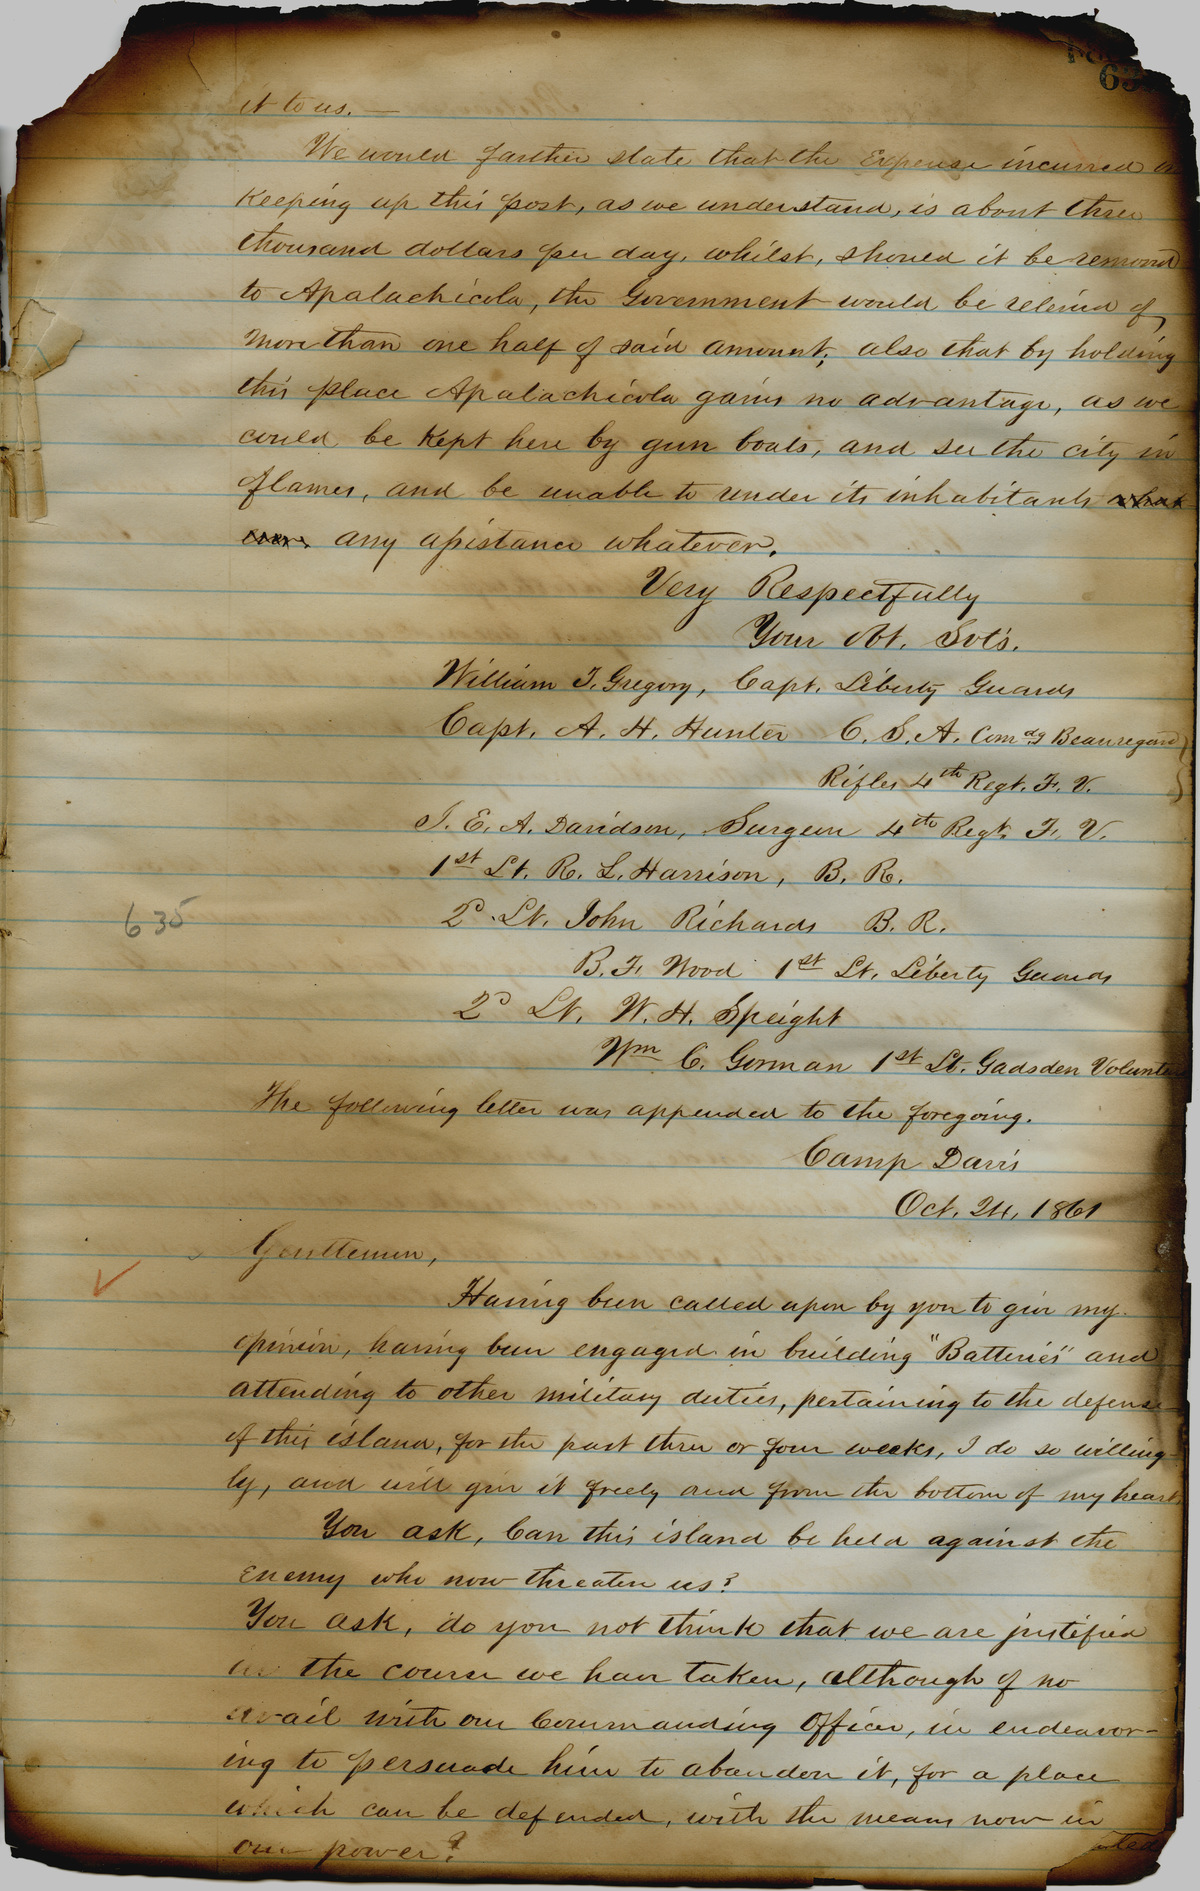 63
it to us. —
We would further state that the Expense incurred in
Keeping up this post, as we understand, is about three
thousand dollars per day, whilst, should it be removed
to Apalachicola, the Government would be relieved of
more than one half of said amount; also that by holding
this place Apalachicola gains no advantage, as we
could be kept here by gun boats, and see the city in
flames, and be unable to render its inhabitants what
ever, any assistance whatever.
Very Respectfully
Your Obt. Svts.
William T. Gregory, Capt. Liberty Guards
Capt. A. H. Hunter C. S. A. Comdg Beauregard
Rifles 4th Regt. F. V.
J. E. A. Davidson, Surgeon 4th Regt. F. V.
1st Lt. R. L. Harrison, B. R.
2d Lt. John Richards B. R.
635
B. F. Wood 1st Lt. Liberty Guards
2d Lt. W. H. Speight
Wm C. Gorman 1st Lt. Gadsden Volunte
The following letter was appended to the foregoing.
Camp Davis
Oct. 24, 1861
Gentlemen,
Having been called upon by you to give my
opinion, having been engaged in building "Batteries" and
attending to other military duties, pertaining to the defense
of this island, for the past three or four weeks, I do so willing-
ly, and will give it freely and from the bottom of my heart.
You ask, Can this island be held against the
Enemy who now threaten us?
You ask, do you not think that we are justified
in the course we have taken, although of no
avail with our Commanding Officer, in endeavor-
ing to persuade him to abandon it, for a place
which can be defended, with the means now in
our power?